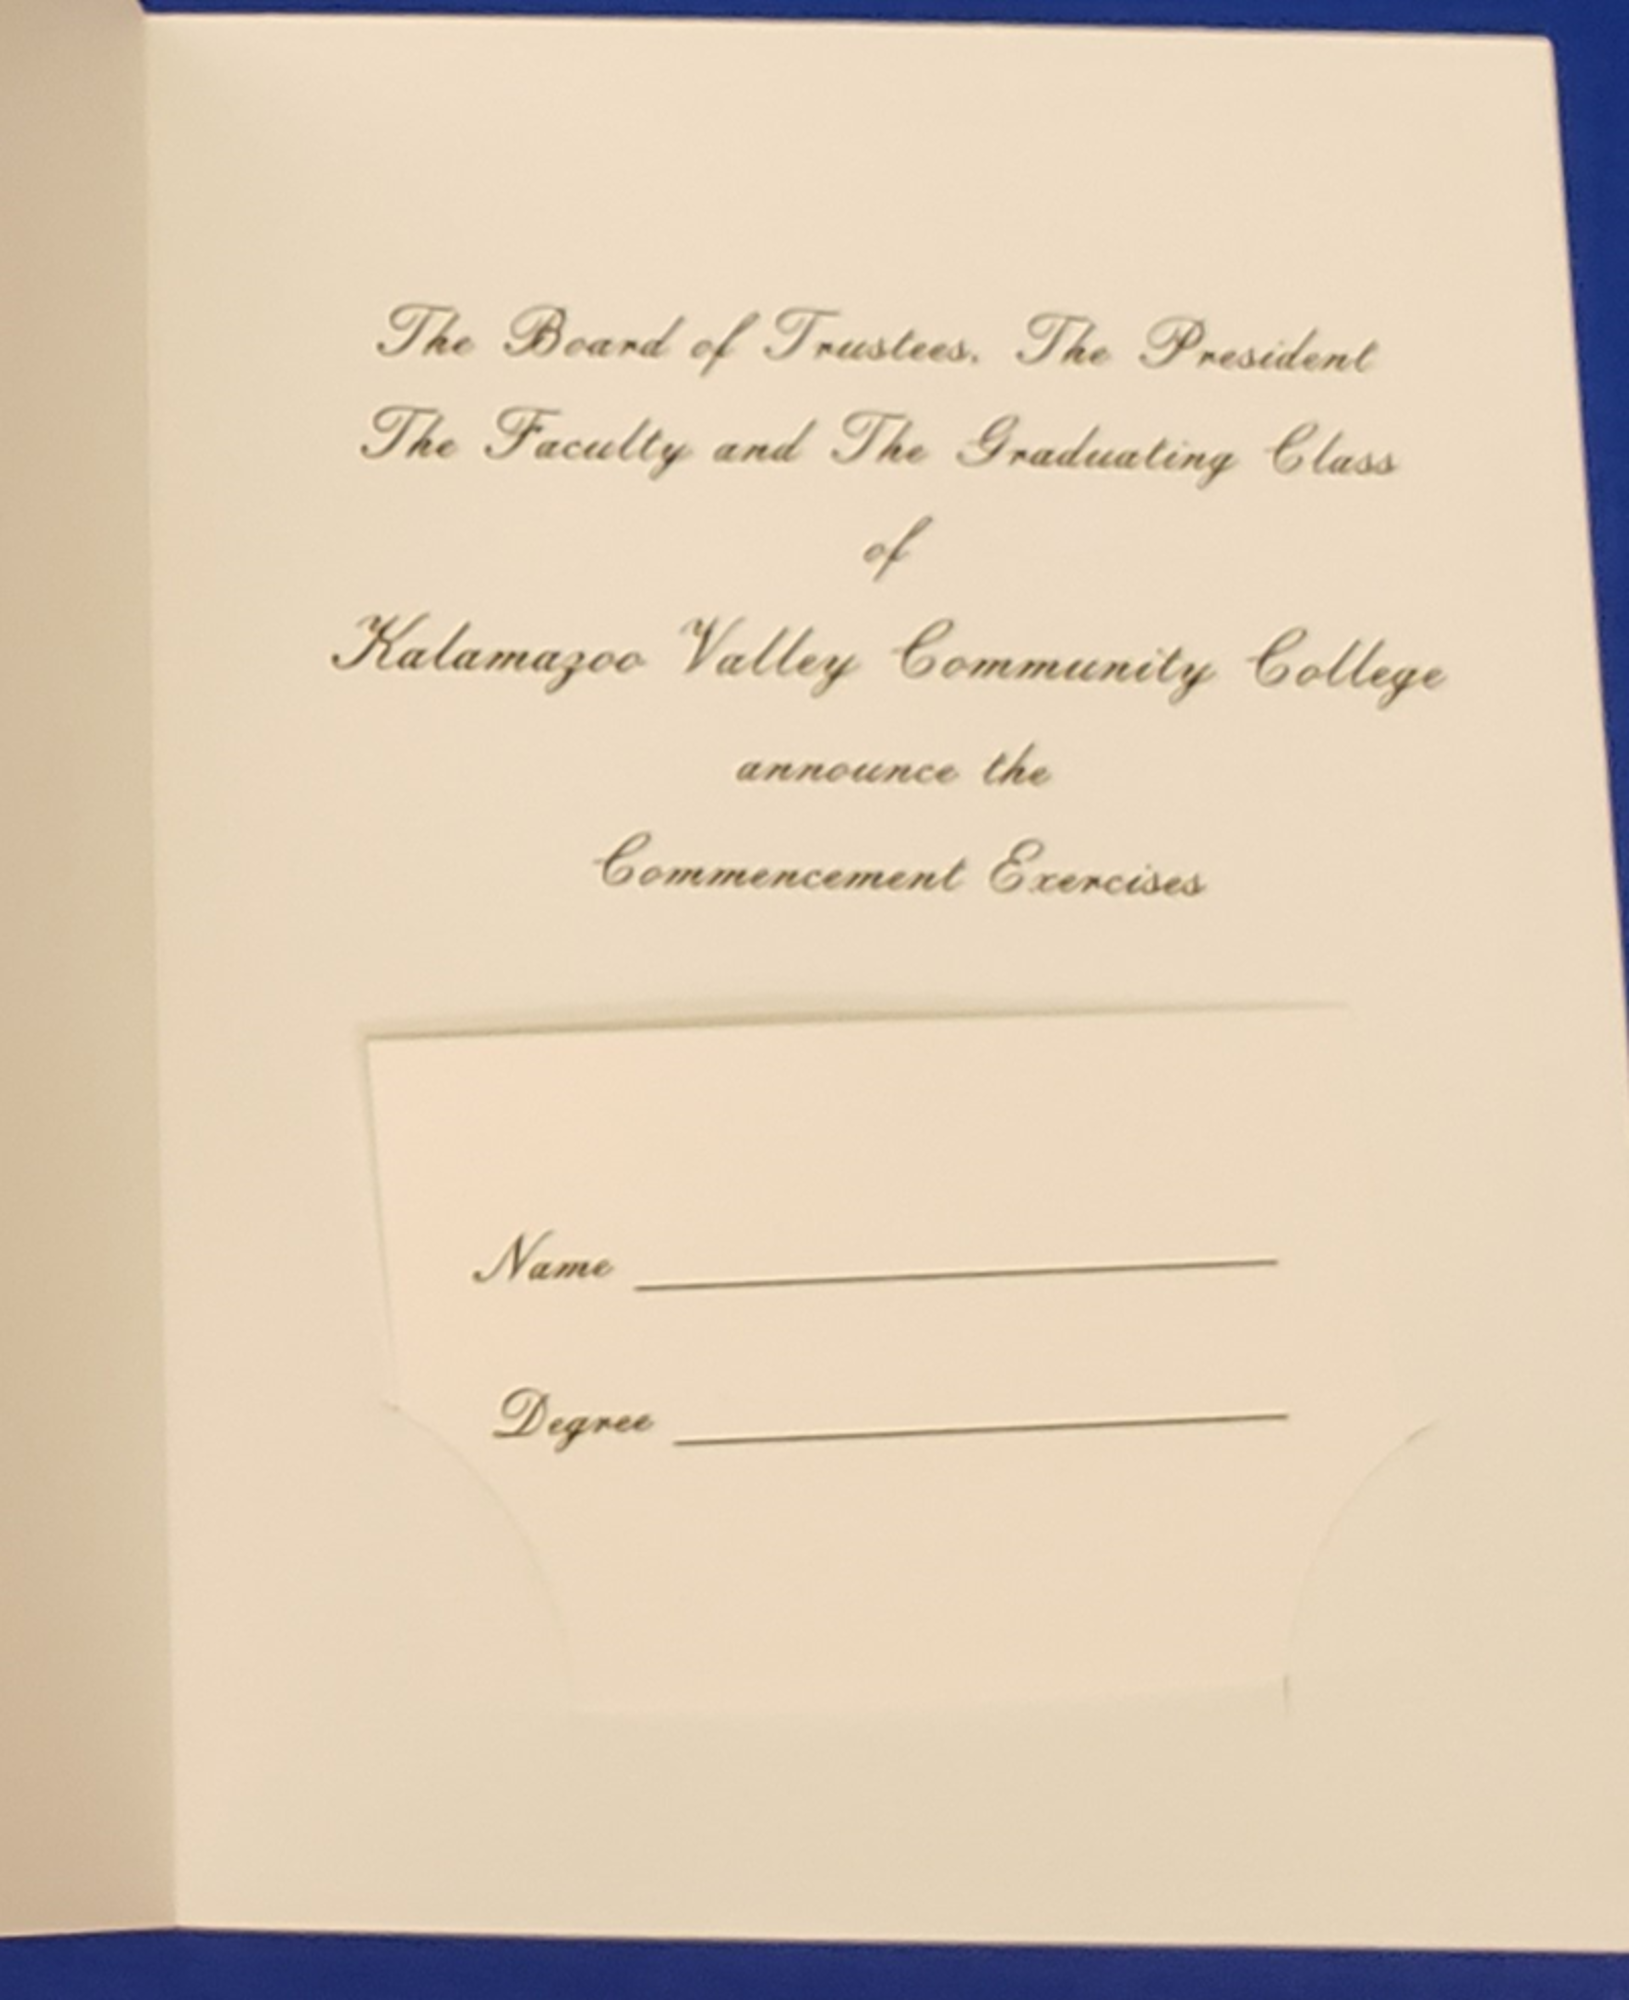 The Board of Trustees, The President
The Faculty and The Graduating Class
of
Kalamazoo Valley Community College
announce the
Commencement Exercises
Name
Degree